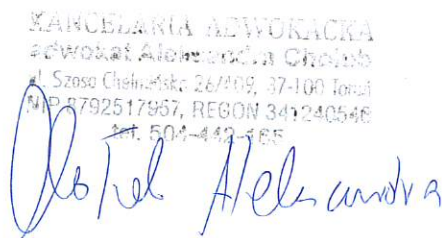 KANCELARIA ADWOKACKA
adwokat Aleksandra Chołub
ul. Szosa Chełmińska 26/409, 87-100 Toruń
NIP 8792517957, REGON 341240546
tel. 504-442-165
Aleksandra